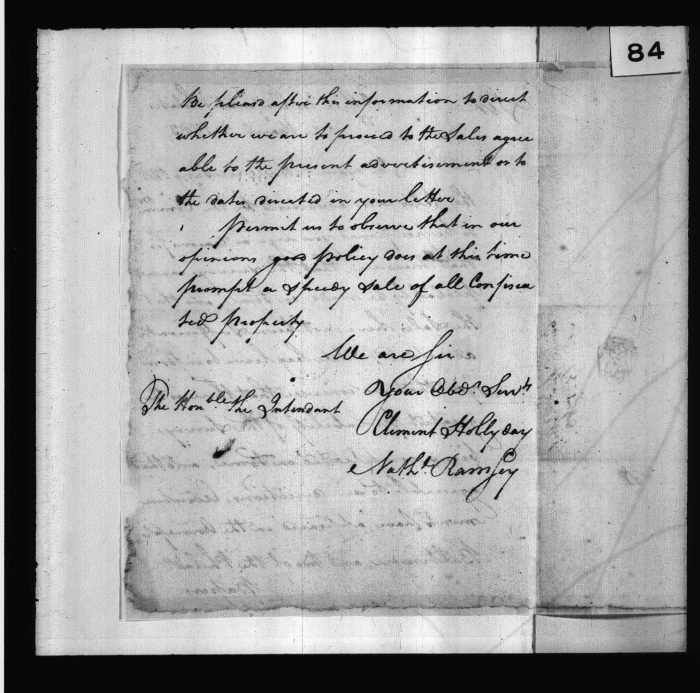 84
Be pleased after this information to direct
whether we are to proceed to the Sales agree
able to the present advertisement or to
the dates directed in your letter
permit us to observe that in our
opinions good policy does at this time
prompt a speedy sale of all Confisca
ted property
We are Sir
Your Obdt Servts
The Honble the Intendant
Clement Hollyday
Nathl Ramsey